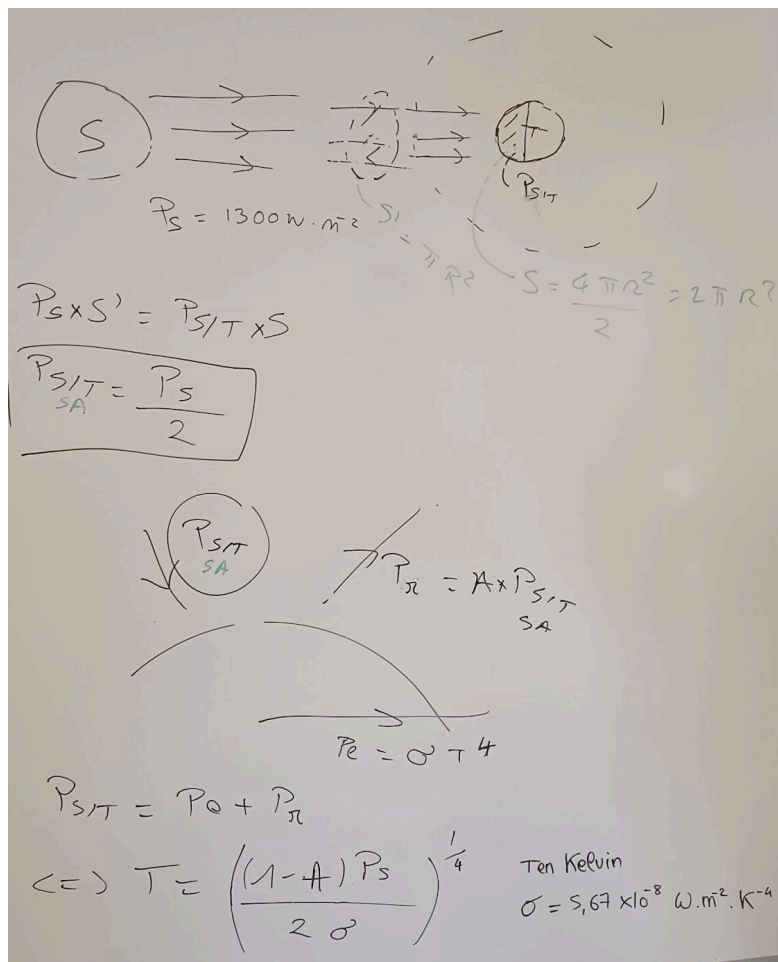 S
T
P_S/T
P_S = 1300 W.m⁻²
S'
= π R²
S = 4 π R² / 2 = 2 π R²
P_S × S' = P_S/T × S
P_S/T = P_S / 2
SA
P_S/T
SA
P_r = A × P_S/T
SA
Pe = σ T⁴
P_S/T = Pe + P_r
<=> T = ((1-A) P_S / 2 σ)^1/4
T en Kelvin
σ = 5,67 × 10⁻⁸ W.m⁻².K⁻⁴